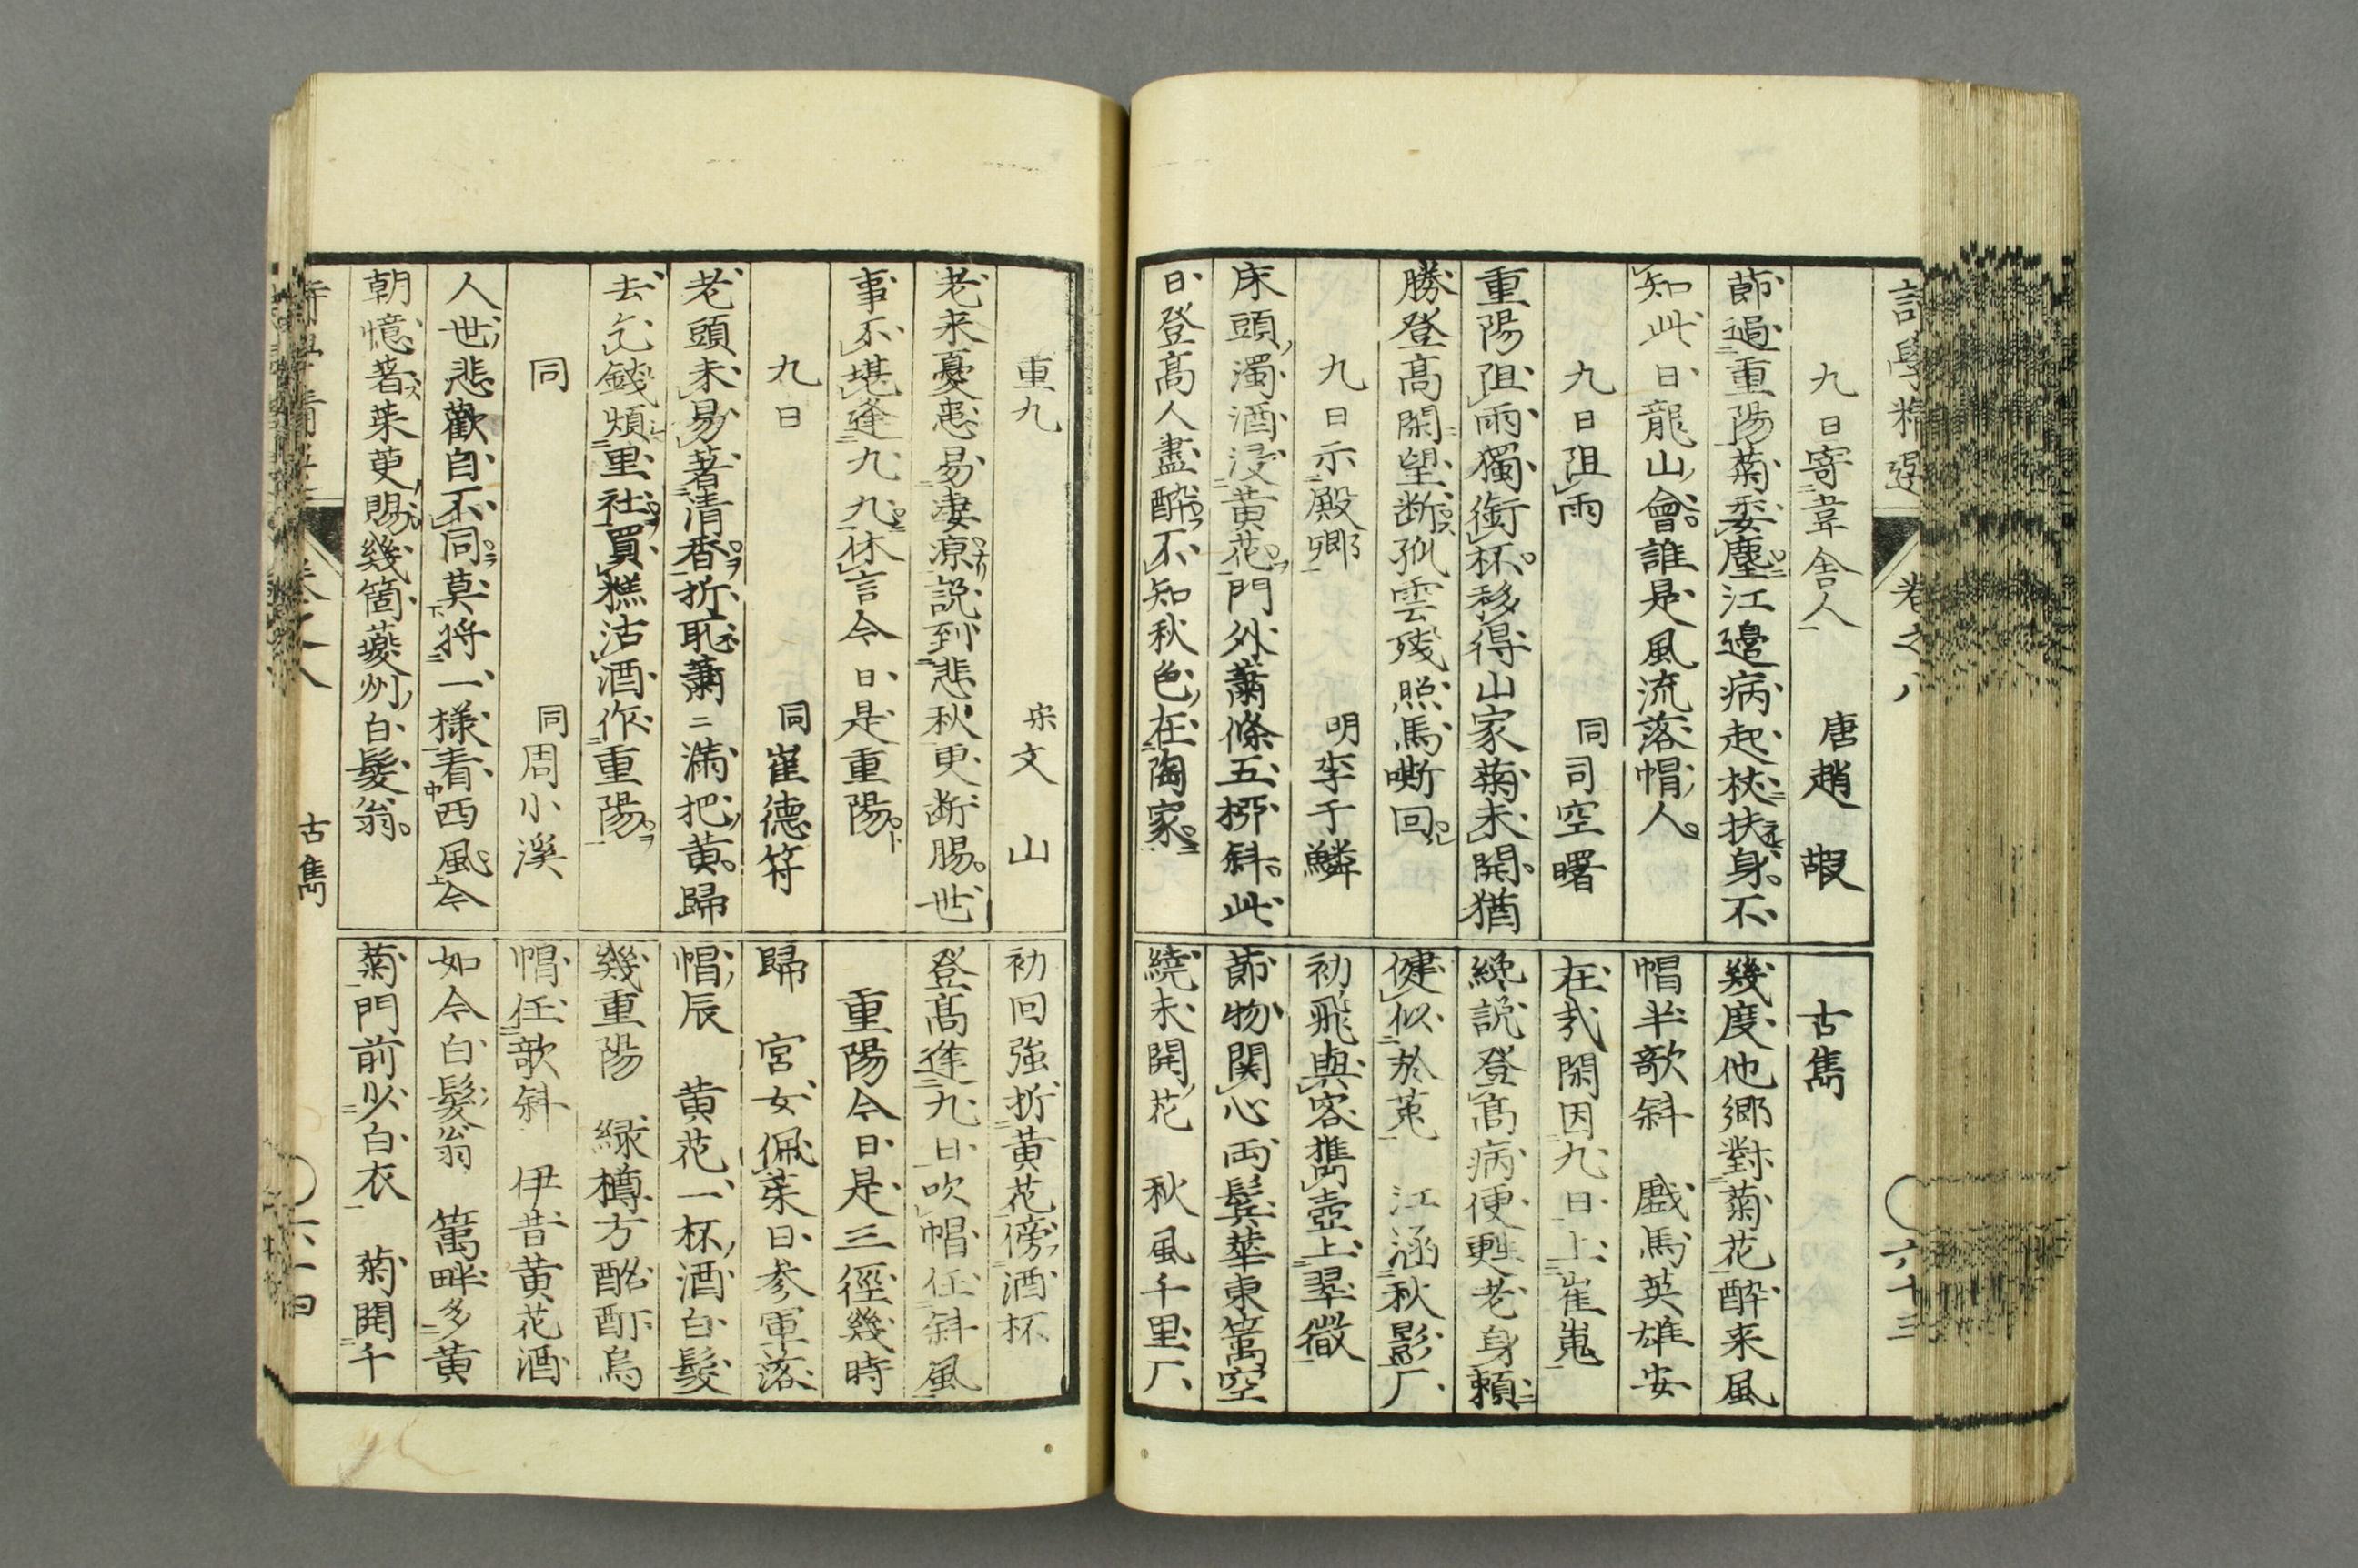 詩學精選
卷之八
六十三
九日寄韋舎人 唐趙嘏
節過重陽菊委塵江邉病起杖扶身不
知此日龍山會誰是風流落帽人
九日阻雨 同司空曙
重陽阻雨獨銜杯移得山家菊未開猶
勝登髙閑望断孤雲殘照馬嘶回
九日示殿卿 明李于鱗
床頭濁酒浸黄花門外蕭條五栁斜此
日登髙人盡醉不知秋色在陶家
古雋
幾度他郷對菊花醉来風
帽半欹斜 戯馬英雄安
在哉閑因九日上崔嵬
纔説登髙病便甦老身頼
健似於菟 江涵秋影厂
初飛與客携壺上翠微
節物関心両鬂華東篱空
繞未開花 秋風千里厂
重九 宋文山
老来憂患易凄凉説到悲秋更断腸世
事不堪逢九九休言今日是重陽
九日 同崔德符
老頭未易著清香折恥蕭〻満把黄歸
去乞錢煩里社買糕沽酒作重陽
同 同周小溪
人世悲歡自不同莫将一様看西風今
朝憶著茱萸賜幾箇夔州白髮翁
初回強折黄花傍酒杯
登髙逢九日吹帽任斜風
重陽今日是三徑幾時
歸 宮女佩茱日参軍落
帽辰 黄花一杯酒白髮
幾重陽 緑樽方酩酊烏
帽任欹斜 伊昔黄花酒
如今白髮翁 篱畔多黄
菊門前少白衣 菊開千
卷之八
古雋
六十四